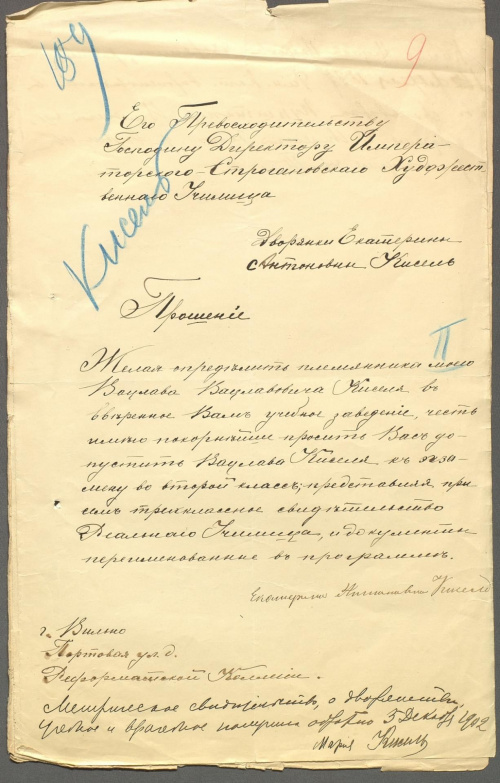 109
9
Кисель
Его Превосходительству
Господину Директору Импера-
торского-Строгановскаго Художест
веннаго Училища
Дворянки Екатерины
Антоновны Кисель
Прошеніе
II
Желая опредѣлить племянника моего
Вацлава Вацлавовича Киселя въ
ввѣренное Вамъ учебное заведеніе, честь
имѣю покорнѣйше просить Васъ до-
пустить Вацлава Киселя къ экза-
мену во второй классъ, представляя при
симъ трехклассное свидѣтельство
Реальнаго Училища, и документы
переименованные въ программѣ.
Екатерина Антоновна Кисель
г. Вильно
Портовая ул. д.
Реформатской Коллегіи.
Метрическое свидѣтельство, о дворянствѣ,
учебное и врачебное получила обратно 5 Декабря 1902
Марія Кисель